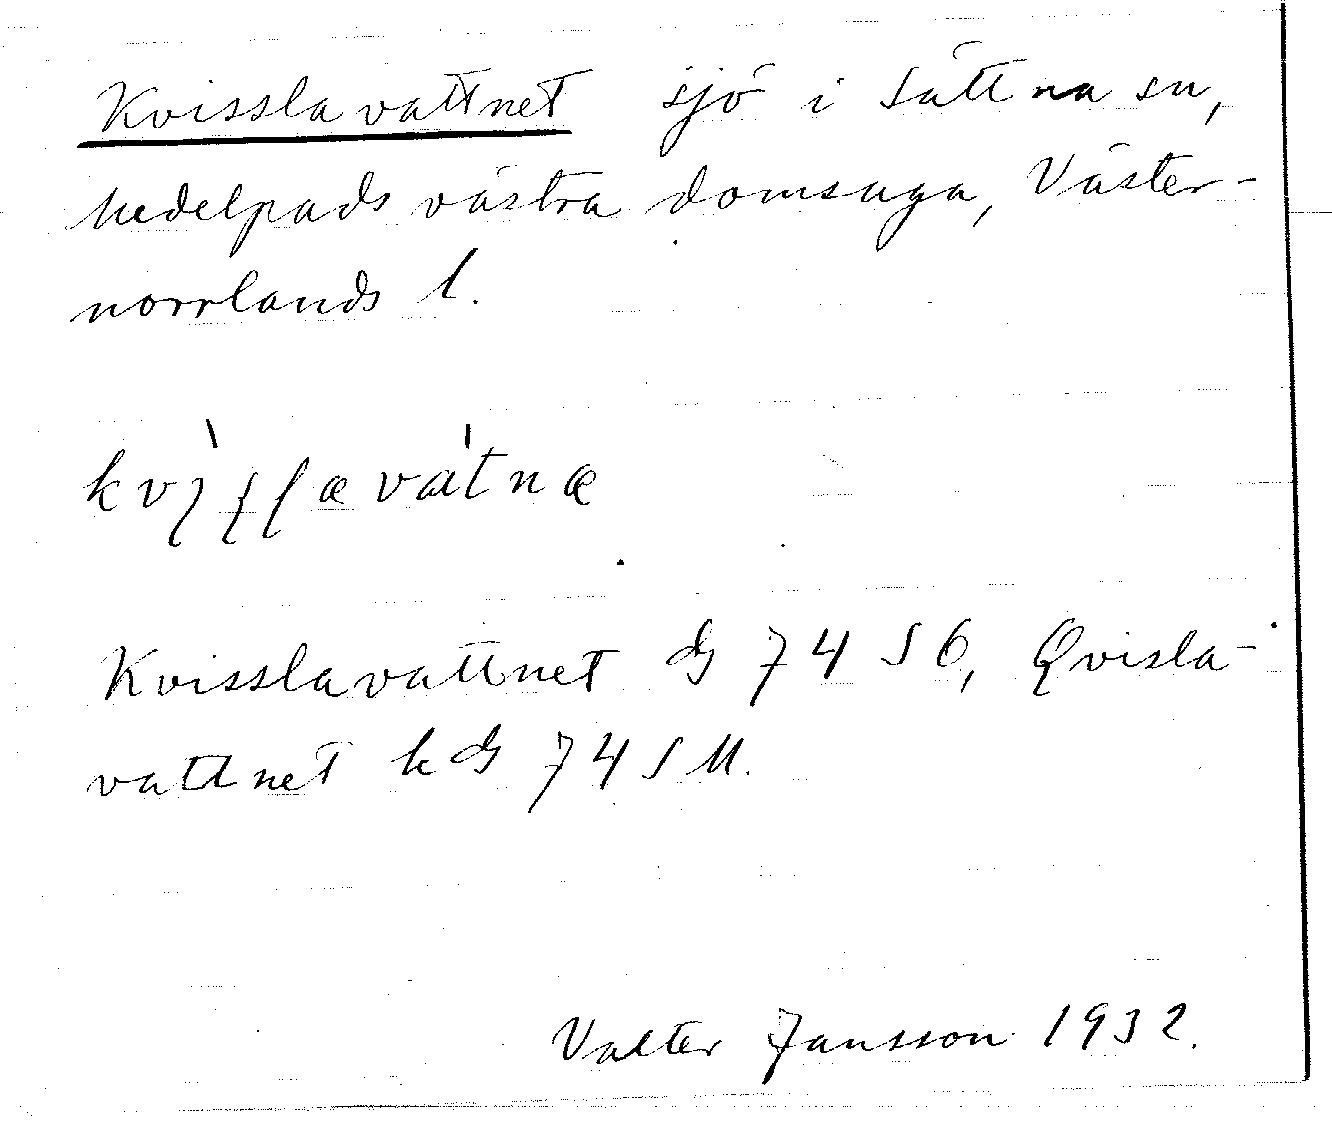 Kvisslavattnet sjö i Sättna sn,
Medelpads västra domsaga, Väster-
norrlands l.
Kvisslavattnet ds 74 SO, Qvisla-
vattnet kds 74 SM.
Valter Jansson 1932.